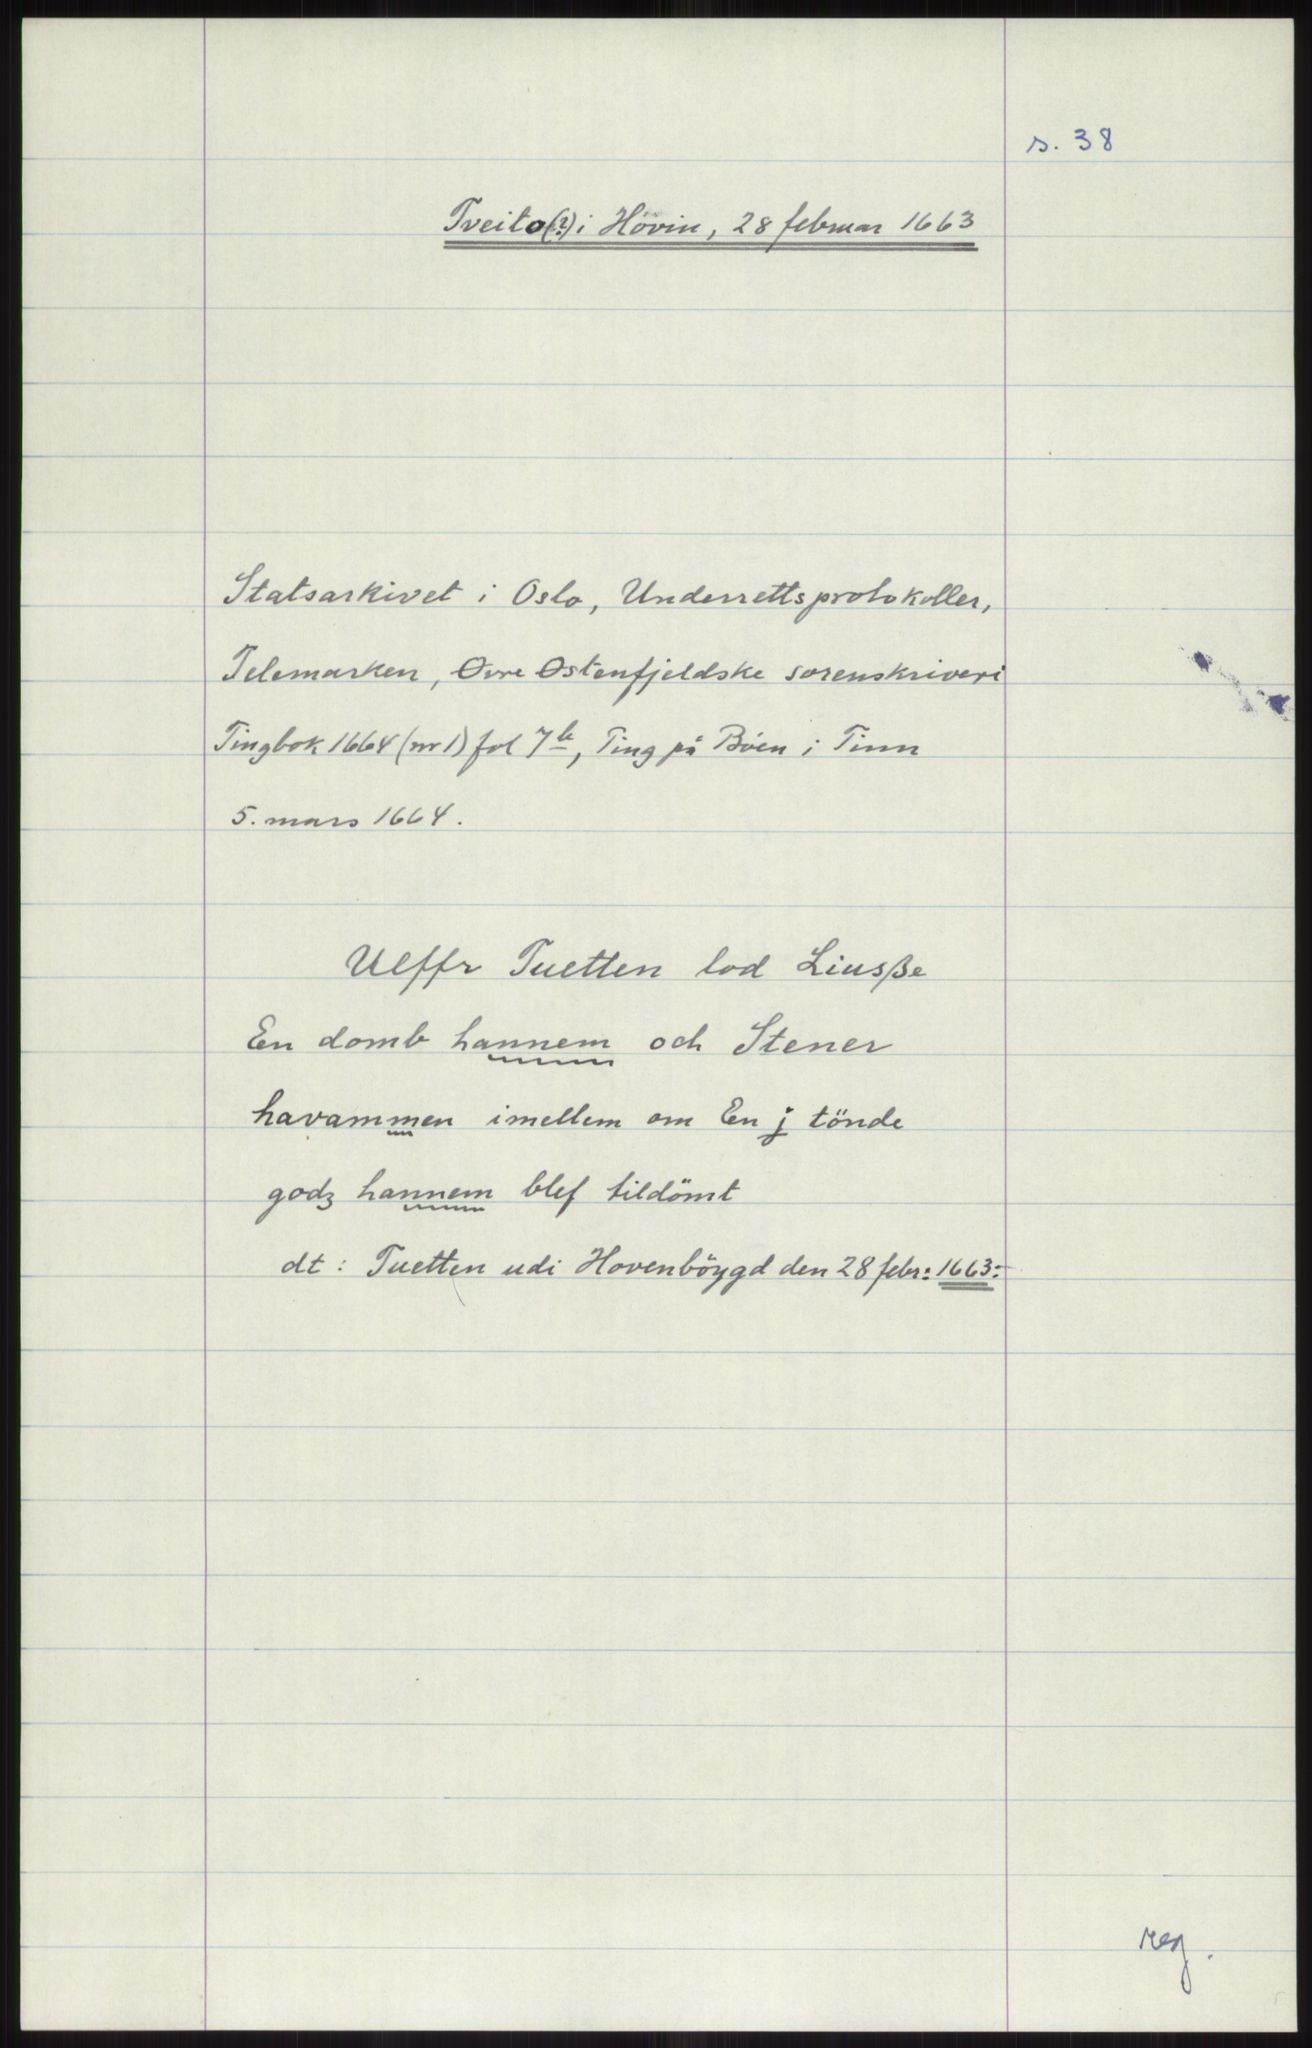 s. 38
Tveito(?) i Hövin, 28 februar 1663
Statsarkivet i Oslo, Underrettsprotokoller,
Telemarken, Øvre Østenfjeldske sorenskriveri
Tingbok 1664 (nr 1) fol 7b, Ting på Böen i Tinn
5. mars 1664.
Ulffr Tuetten lod Liusße
En domb hannem och Stener
havammen imellem om En j tönde
godz hannem blef tildömt
dt: Tuetten udi Hovenböygd den 28 febr: 1663:
reg.